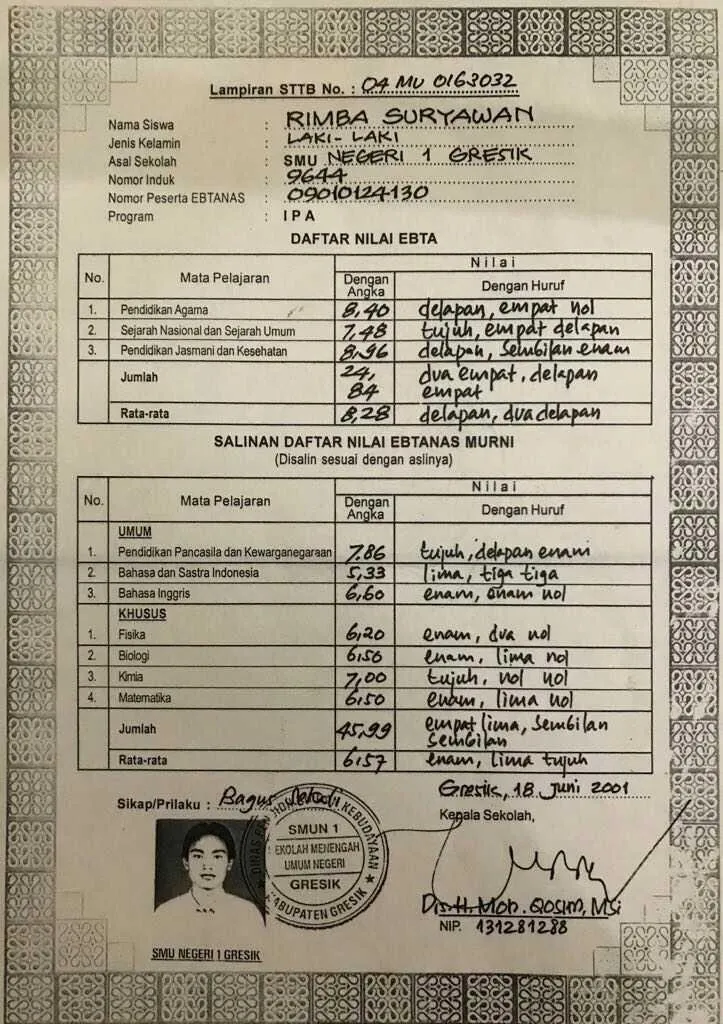 Lampiran STTB No. : 04 MU 0163032
Nama Siswa : RIMBA SURYAWAN
Jenis Kelamin : LAKI-LAKI
Asal Sekolah : SMU NEGERI 1 GRESIK
Nomor Induk : 9644
Nomor Peserta EBTANAS : 09010124130
Program : IPA
DAFTAR NILAI EBTA
No. Mata Pelajaran Nilai
Dengan Angka Dengan Huruf
1. Pendidikan Agama 8,40 delapan, empat nol
2. Sejarah Nasional dan Sejarah Umum 7,48 tujuh, empat delapan
3. Pendidikan Jasmani dan Kesehatan 8,96 delapan, Sembilan enam
Jumlah 24,84 dua empat, delapan empat
Rata-rata 8,28 delapan, dua delapan
SALINAN DAFTAR NILAI EBTANAS MURNI
(Disalin sesuai dengan aslinya)
No. Mata Pelajaran Nilai
Dengan Angka Dengan Huruf
UMUM
1. Pendidikan Pancasila dan Kewarganegaraan 7.86 tujuh, delapan enam
2. Bahasa dan Sastra Indonesia 5,33 lima, tiga tiga
3. Bahasa Inggris 6,60 enam, enam nol
KHUSUS
1. Fisika 6,20 enam, dua nol
2. Biologi 6,50 enam, lima nol
3. Kimia 7,00 tujuh, nol nol
4. Matematika 6,50 enam, lima nol
Jumlah 45,99 empat lima, Sembilan Sembilan
Rata-rata 6,57 enam, lima tujuh
Gresik, 18 Juni 2001
Sikap/Prilaku : Bagus
Kepala Sekolah,
KEBUDAYAAN
SMUN 1
SEKOLAH MENENGAH
UMUM NEGERI
GRESIK
KABUPATEN GRESIK
Drs. H. MOH. QOSIM, MSi
NIP. 131281288
SMU NEGERI 1 GRESIK